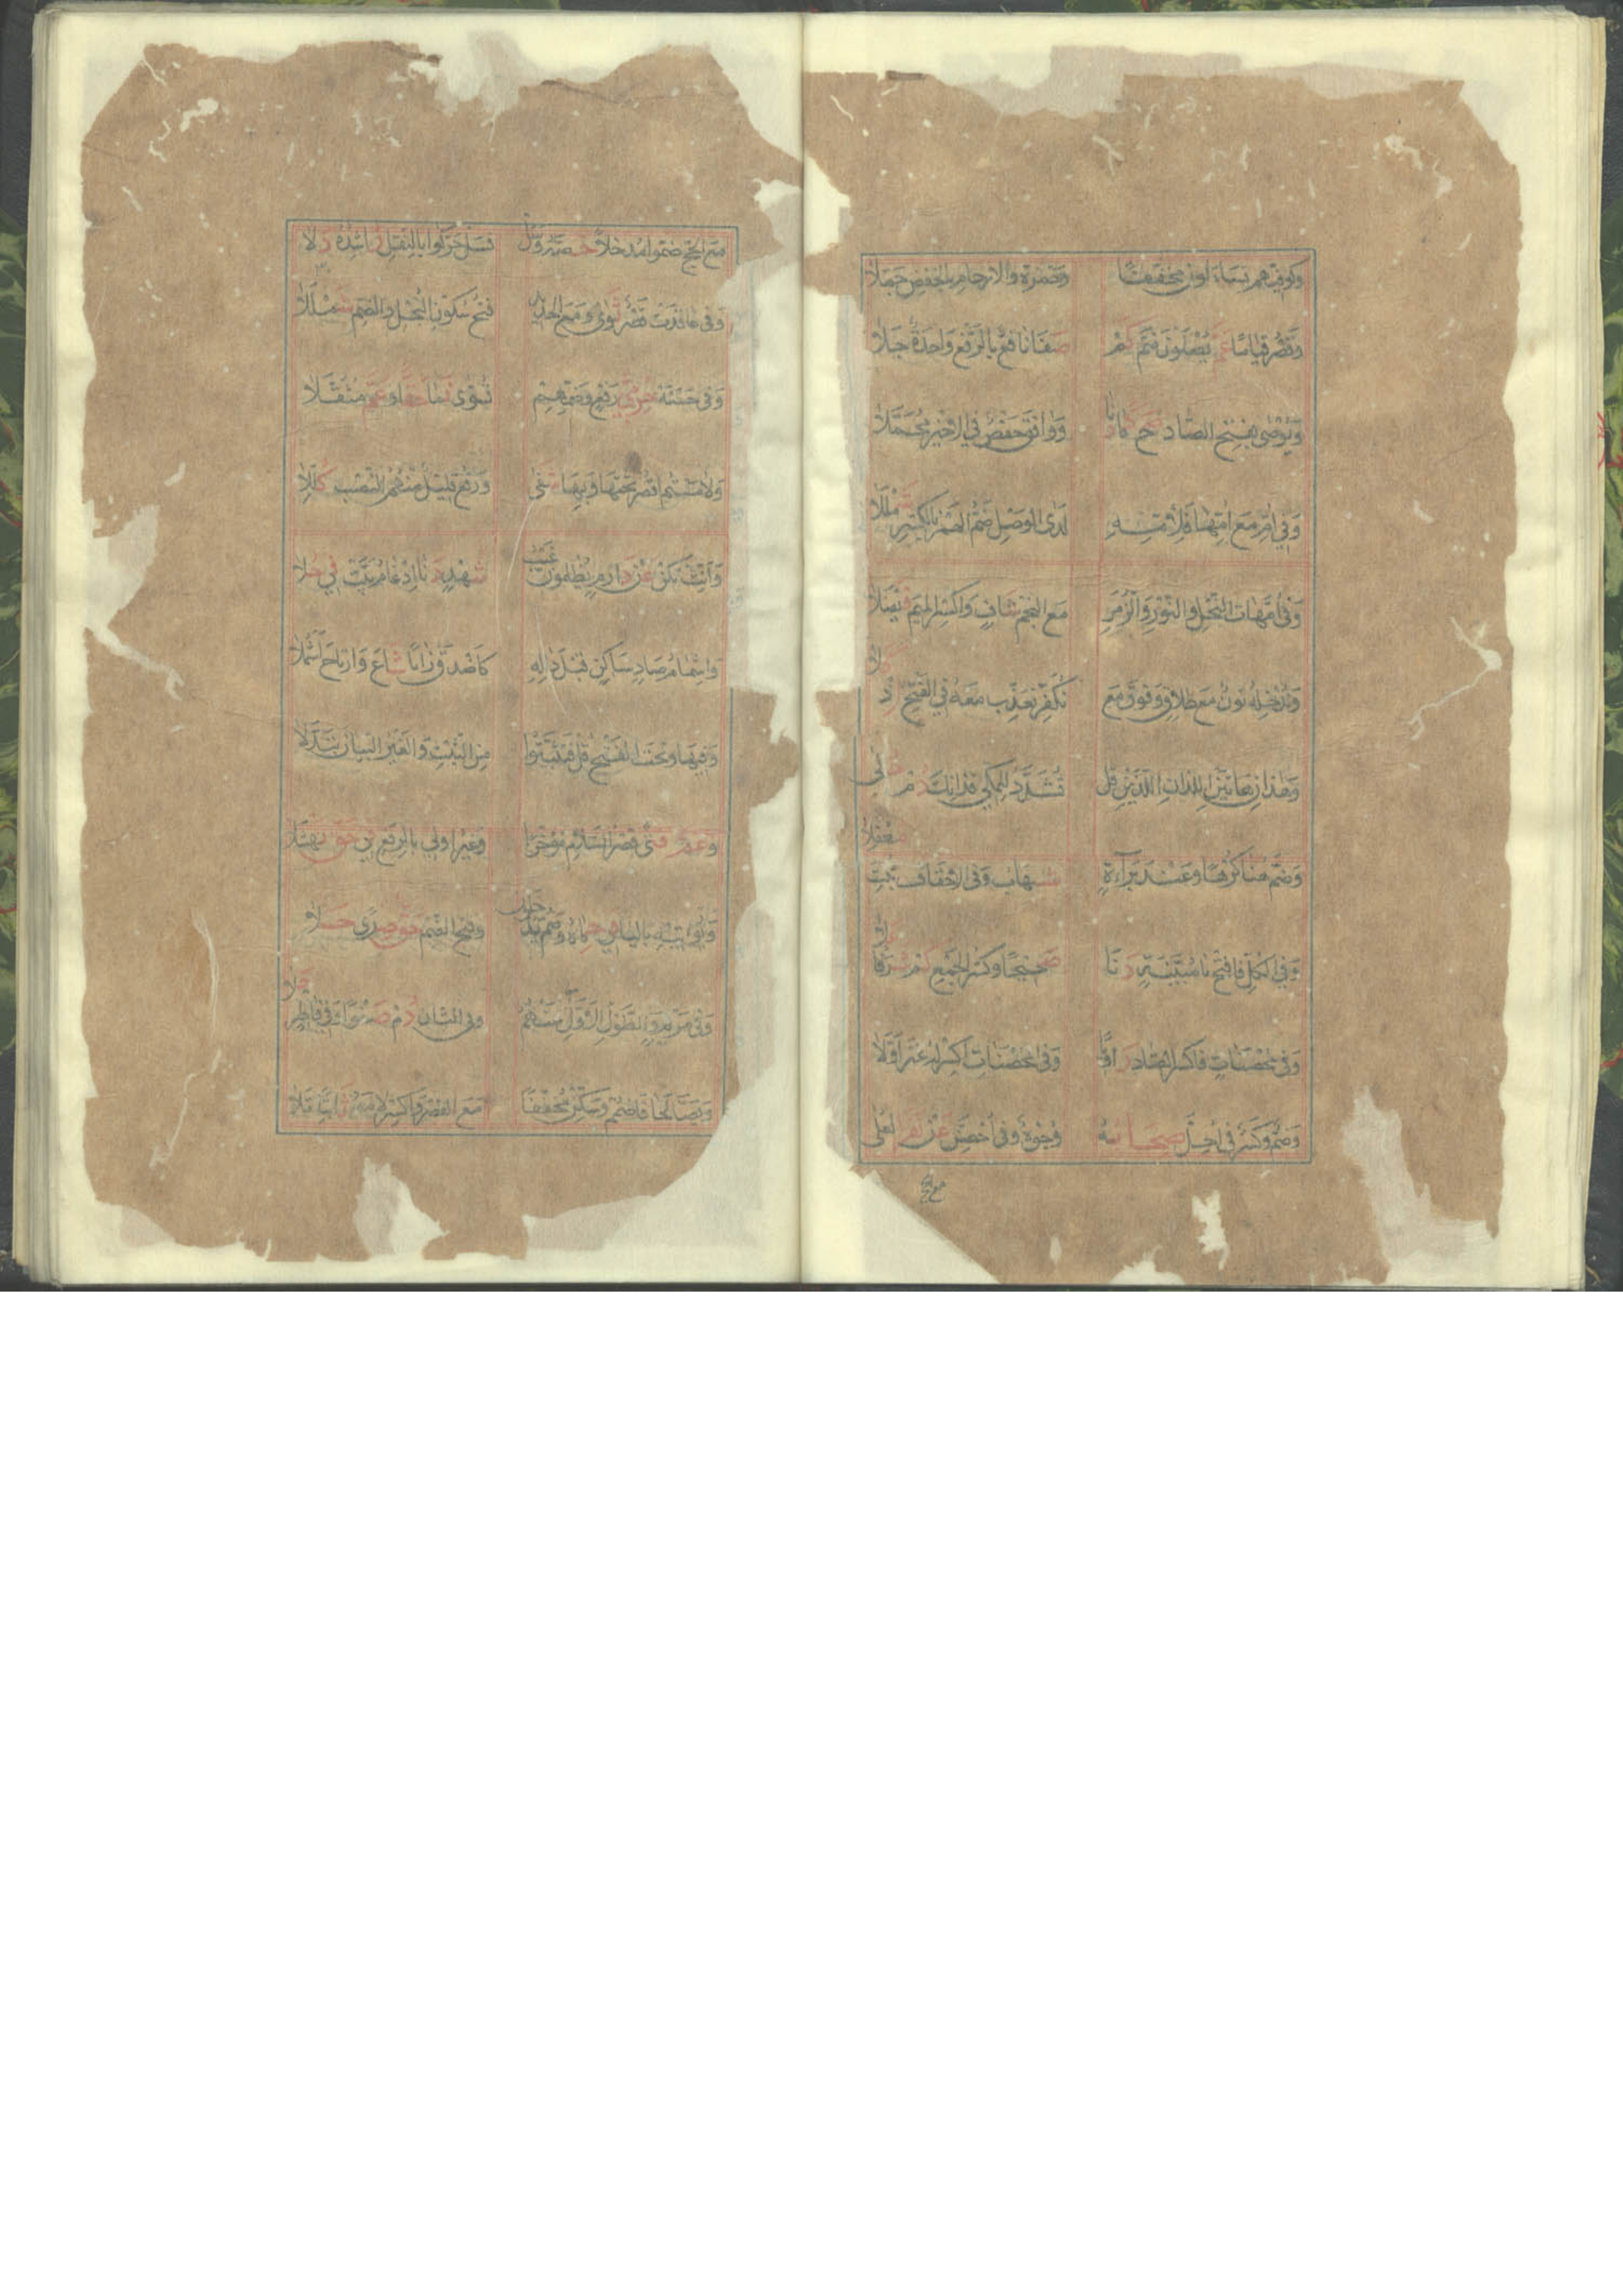 وَكوفيهم تساءلون مخففًا وحمزة والارحام بالخفض جملا
وقصر قيامًا عم يصلون ضم كم صفا نافع بالرفع واحدة جلا
ويوصى بفتح الصاد صح كما دنا ووافق حفص في الاخير مجملا
وفي ام مع امها فلامه لدى الوصل ضم الهمز بالكسر شمللا
وفي امهات النحل والنور والزمر مع النجم شاف واكسر الميم فيصلا
وندخله نون مع طلاق وفوق مع نكفر نعذب معه في الفتح اذ كلا
وهذان هاتين اللذان اللذين قل تشدد للمكي فذانك دم حلى
وضم هنا كرهًا وعند براءة شهاب وفي الاحقاف ثبت معقلا
وفي الكل فافتح يا مبينة دنا صحيحًا وكسر الجمع كم شرفًا علا
وفي محصنات فاكسر الصاد راويًا وفي المحصنات اكسر له غير اولا
وضم وكسر في احل صحابه وجوه وفي احصن عن نفر العلى
مع الحج
مع الحج ضموا مدخلًا خصه وسل فسل حركوا بالنقل راشده دلا
وفي عاقدت قصر ثوى ومع الحديد فتح سكون البخل والضم شمللا
وفي حسنة حرمي رفع وضمهم تسوى نما حقا وعم مثقلا
ولامستم اقصر تحتها وبها شفى ورفع قليل منهم النصب كللا
وانث تكن عن دارم يظلمون غيب شهد دنا ادغام بيت في حلا
واشمام صاد ساكن قبل داله كاصدق زايًا شاع وارتاح اشملا
وفيها وتحت الفتح قل فتثبتوا من الثبت والغير البيان تبدلا
وعم فتى قصر السلام مؤخرًا وغير اولي بالرفع في حق نهشلا
ونؤتيه باليا في حماه وضم يدخلون وفتح الضم حق صرى حلا
وفي مريم والطول الاول عنهم وفي الثان دم صفوًا وفي فاطر حلا
ويصالحا فاضمم وسكن مخففًا مع القصر واكسر لامه ثابتًا تلا